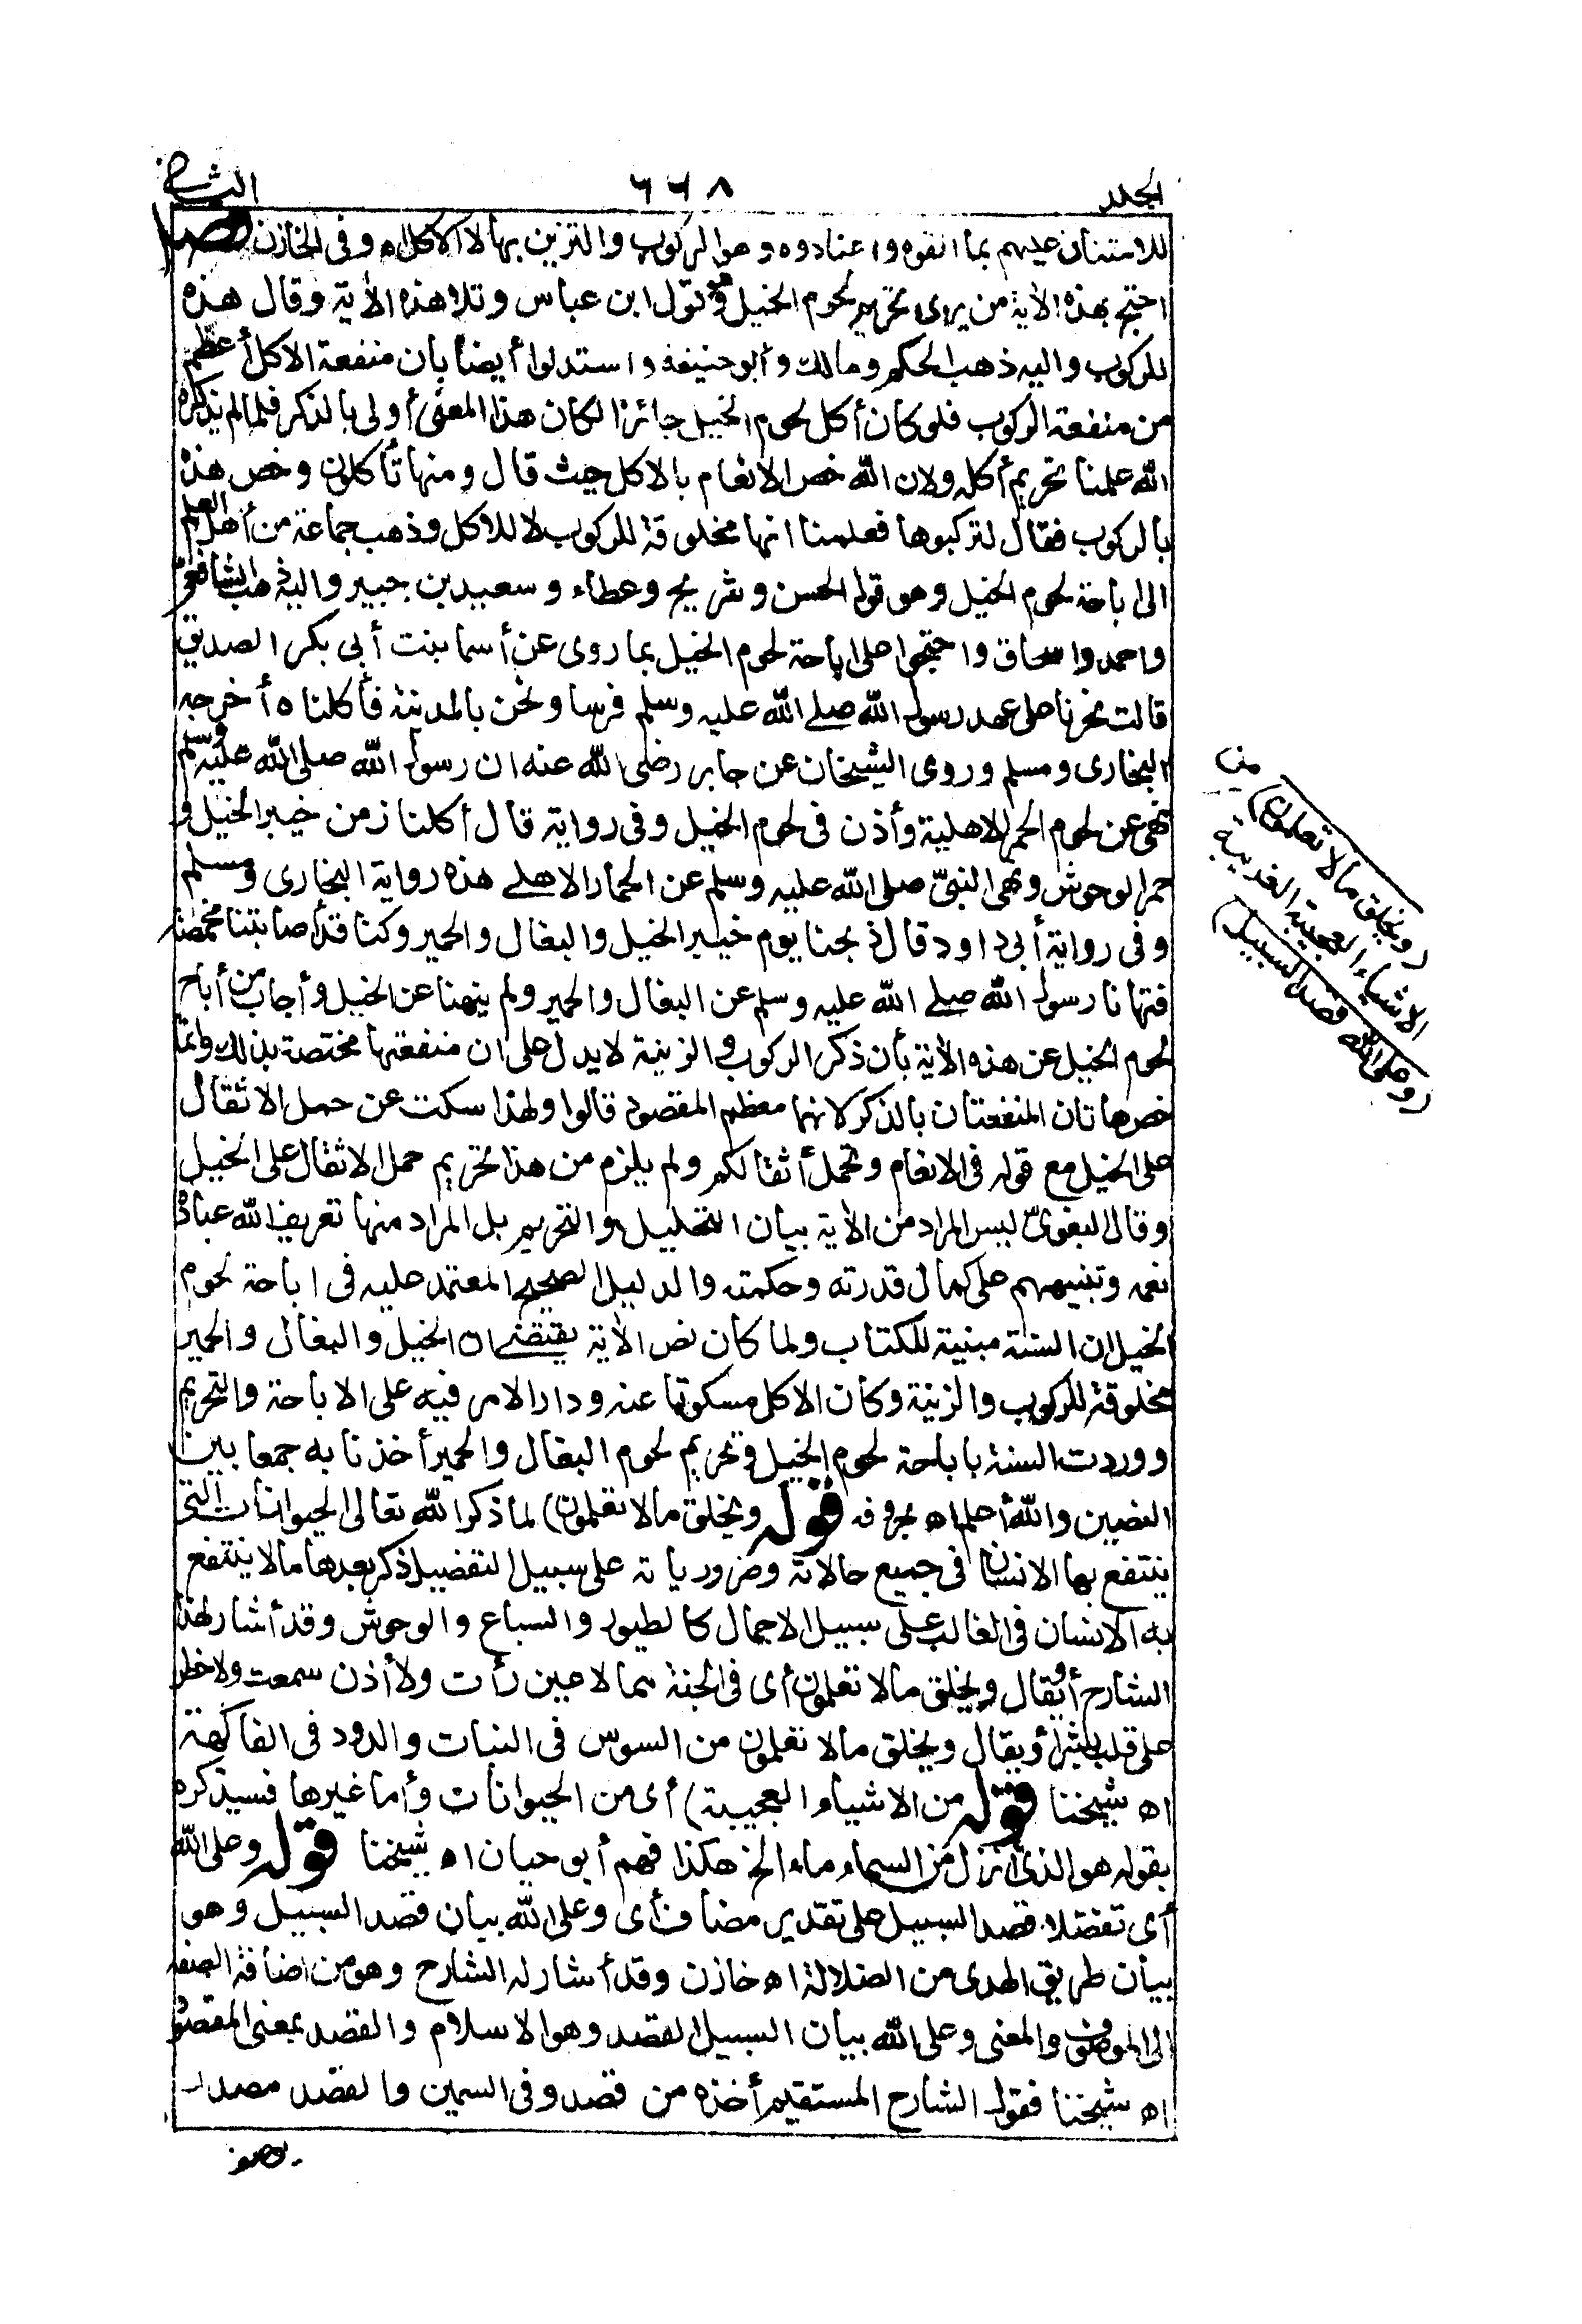 الجلد ٦٦٨ الثانی
للامتنان عليهم بما القوه واعتادوه وهو الركوب والتزين بها لا الاكل اه وفى الخازن فصل
احتج بهذه الآية من يرى تحريم لحوم الخيل وهو قول ابن عباس وتلا هذه الآية وقال هذه
للركوب واليه ذهب الحكم ومالك وأبو حنيفة واستدلوا أيضا بأن منفعة الاكل أعظم
من منفعة الركوب فلو كان أكل لحوم الخيل جائزا لكان هذا المعنى أولى بالذكر فلما لم يذكره
الله علمنا تحريم أكله ولان الله خص الانعام بالاكل حيث قال ومنها تأكلون وخص هذه
بالركوب فقال لتركبوها فعلمنا انها مخلوقة للركوب لا للاكل وذهب جماعة من أهل العلم
الى اباحة لحوم الخيل وهو قول الحسن وشريح وعطاء وسعيد بن جبير واليه ذهب الشافعى
واحمد واسحاق واحتجوا على اباحة لحوم الخيل بما روى عن أسما بنت أبى بكر الصديق
قالت نحرنا على عهد رسول الله صلى الله عليه وسلم فرسا ونحن بالمدينة فأكلناه أخرجه
البخارى ومسلم وروى الشيخان عن جابر رضى الله عنه ان رسول الله صلى الله عليه وسلم
نهى عن لحوم الحمر الاهلية وأذن فى لحوم الخيل وفى رواية قال أكلنا زمن خيبر الخيل و
حمر الوحوش ونهى النبىّ صلى الله عليه وسلم عن الحمار الاهلى هذه رواية البخارى ومسلم
وفى رواية أبى داود قال ذبحنا يوم خيبر الخيل والبغال والحمير وكنا قد أصابتنا مخمصة
فنهانا رسول الله صلى الله عليه وسلم عن البغال والحمير ولم ينهنا عن الخيل وأجاب من أباح
لحوم الخيل عن هذه الآية بأن ذكر الركوب والزينة لا يدل على ان منفعتها مختصة بذلك وانما
خص هاتان المنفعتان بالذكر لانهما معظم المقصود قالوا ولهذا سكت عن حمل الاثقال
على الخيل مع قوله فى الانعام وتحمل أثقالكم ولم يلزم من هذا تحريم حمل الاثقال على الخيل
وقال البغوىّ ليس المراد من الآية بيان التحليل والتحريم بل المراد منها تعريف الله عباده
نعمه وتنبيههم على كمال قدرته وحكمته والدليل الصحيح المعتمد عليه فى اباحة لحوم
الخيل ان السنة مبنية للكتاب ولما كان نص الآية يقتضى ان الخيل والبغال والحمير
مخلوقة للركوب والزينة وكان الاكل مسكوتا عنه ودار الامر فيه على الاباحة والتحريم
ووردت السنة باباحة لحوم الخيل وتحريم لحوم البغال والحمير أخذنا به جمعا بين
النصين والله أعلم اه بحروفه قوله ويخلق ما لا تعلمون) لما ذكر الله تعالى الحيوانات التى
ينتفع بها الانسان فى جميع حالاته وضرورياته على سبيل التفصيل ذكر بعدها ما لا ينتفع
به الانسان فى الغالب على سبيل الاجمال كالطيور والسباع والوحوش وقد أشار لهذا
الشارح أو يقال ويخلق ما لا تعلمون أى فى الجنة مما لا عين رأت ولا أذن سمعت ولا خطر
على قلب بشر أو يقال ويخلق ما لا تعلمون من السوس فى النبات والدود فى الفاكهة
اه شيخنا قوله من الاشياء العجيبة) أى من الحيوانات وأما غيرها فسيذكره
بقوله هو الذى أنزل من السماء ماء الخ هكذا فهم أبو حيان اه شيخنا قوله وعلى الله
أى تفضلا قصد السبيل على تقدير مضاف أى وعلى الله بيان قصد السبيل وهو
بيان طريق الهدى من الضلالة اه خازن وقد أشار له الشارح وهو من اضافة الصفة
الى الموصوف والمعنى وعلى الله بيان السبيل القصد وهو الاسلام والقصد بمعنى المقصود
اه شيخنا فقول الشارح المستقيم أخذه من قصد وفى السمين والقصد مصدر
يوصف
(ويخلق ما لا تعلمون) من
الاشياء العجيبة الغريبة
(وعلى الله قصد السبيل)